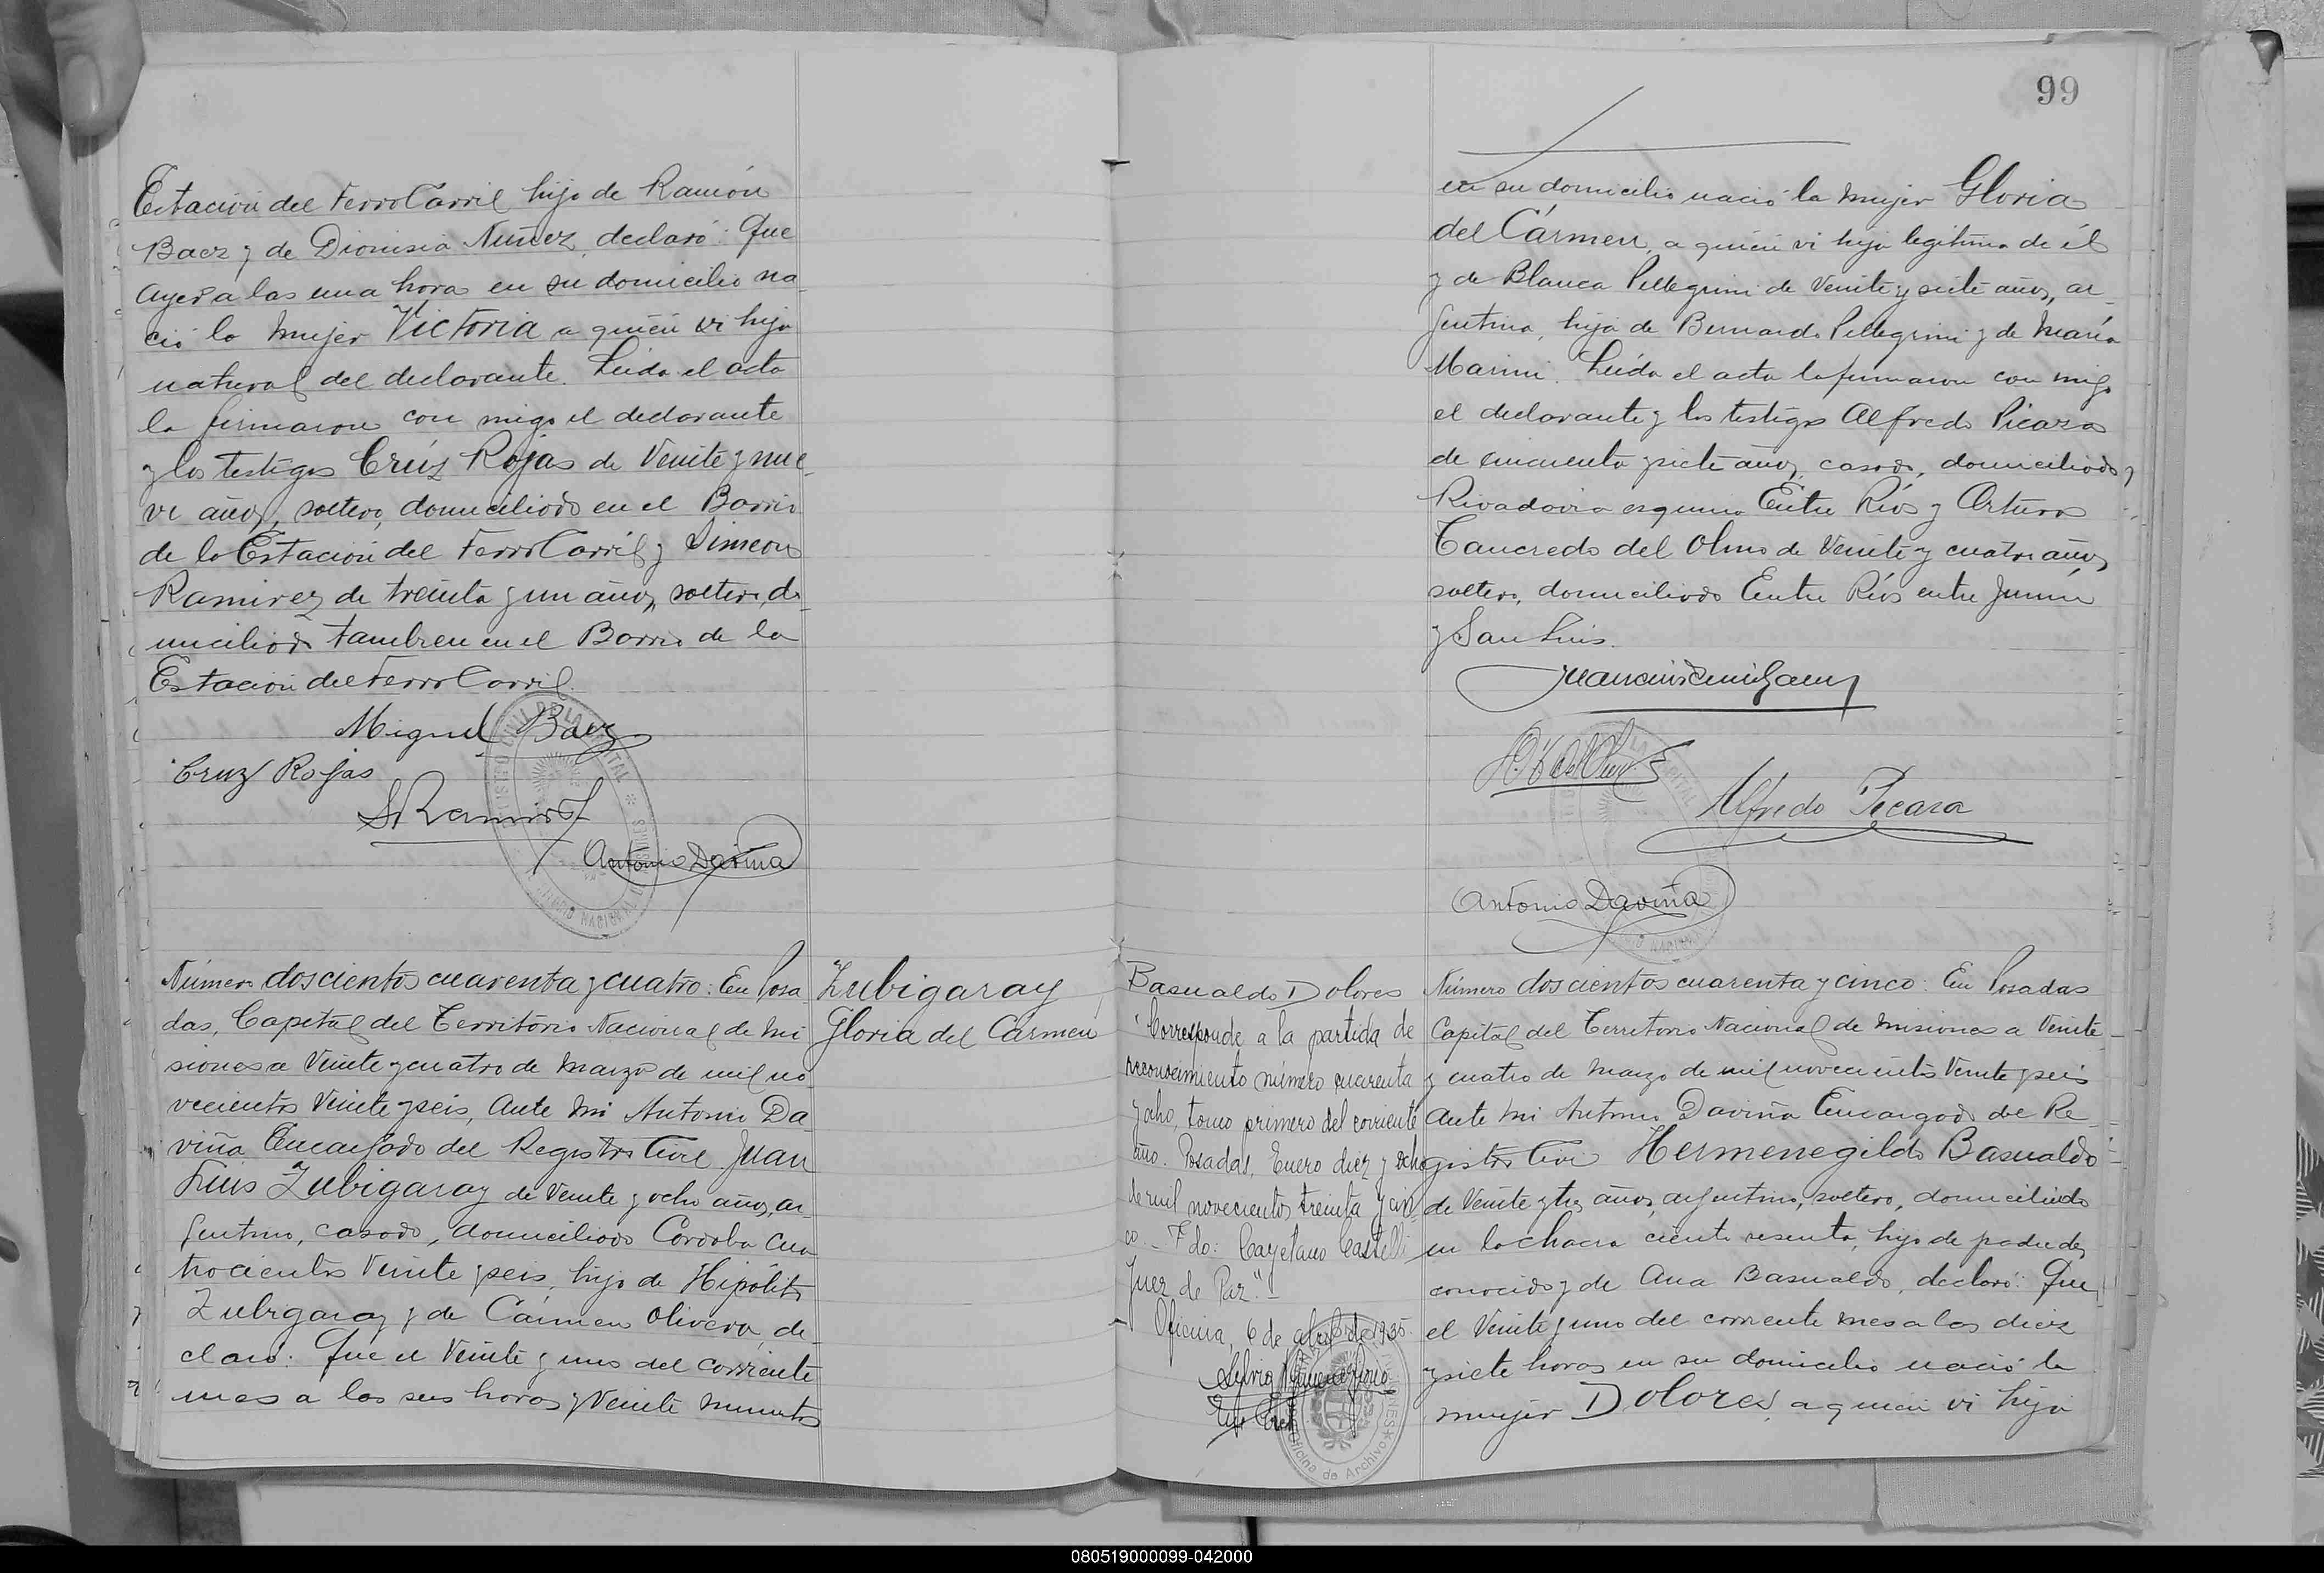 Estación del FerroCarril hijo de Ramón
Baez y de Dionisia Nuñez, declaró: Que
ayer a las una hora en su domicilio na
ció la mujer Victoria a quien vi hija
natural del declarante. Leida el acta
la firmaron con migo el declarante
y los testigos Crúz Rojas de Veinte y nue
ve años, soltero, domiciliado en el Barrio
de la Estación del FerroCarril y Simeon
Ramirez de treinta y un años, soltero, do
miciliado tambien en el Barrio de la
Estación del FerroCarril.
Miguel Baez
Cruz Rojas
S Ramirez
Antonio Daviña
Número doscientos cuarenta y cuatro: En Posa
das, Capital del Territorio Nacional de Mi
siones a Veinte y cuatro de Marzo de mil no
vecientos Veinte y seis, Ante Mi Antonio Da
viña Encargado del Registro Civil Juan
Luis Zubigaray de Veinte y ocho años, ar
gentino, casado, domiciliado Cordoba Cua
trocientos Veinte y seis, hijo de Hipólito
Zubigaray y de Cármen Olivera, de
claró: Que el Veinte y uno del corriente
mes a las seis horas y Veinte minutos
Zubigaray
Gloria del Carmen
99
en su domicilio nació la mujer Gloria
del Cármen, a quien vi hija legitima de él
y de Blanca Pellegrini de Veinte y siete años, ar
gentina, hija de Bernardo Pellegrini y de María
Marini. Leída el acta la firmaron con migo
el declarante y los testigos Alfredo Picaza
de cincuenta y siete años, casado, domiciliado
Rivadavia esquina Entre Ríos y Arturo
Tancredo del Olmo de Veinte y cuatro años,
soltero, domiciliado Entre Ríos entre Junín
y San Luis.
Alfredo Picaza
Antonio Daviña
Basualdo Dolores
"Corresponde a la partida de
reconocimiento número cuarenta
y ocho, tomo primero del corriente
año. Posadas, Enero diez y ocho
de mil novecientos treinta y cin
co._ Fdo: Cayetano Castelli
Juez de Paz."_
Oficina, 6 de abril de 1935.
Oficina de Archivo
Número doscientos cuarenta y cinco: En Posadas
Capital del Territorio Nacional de Misiones a Veinte
y cuatro de Marzo de mil novecientos Veinte y seis
Ante Mi Antonio Daviña Encargado del Re
gistro Civil Hermenegildo Basualdo
de Veinte y tres años, argentino, soltero, domiciliado
en la chacra ciento sesenta, hijo de padre des
conocido y de Ana Basualdo, declaró: Que
el Veinte y uno del corriente mes a las diez
y siete horas en su domicilio nació la
mujer Dolores, a quien vi hija
080519000099-042000